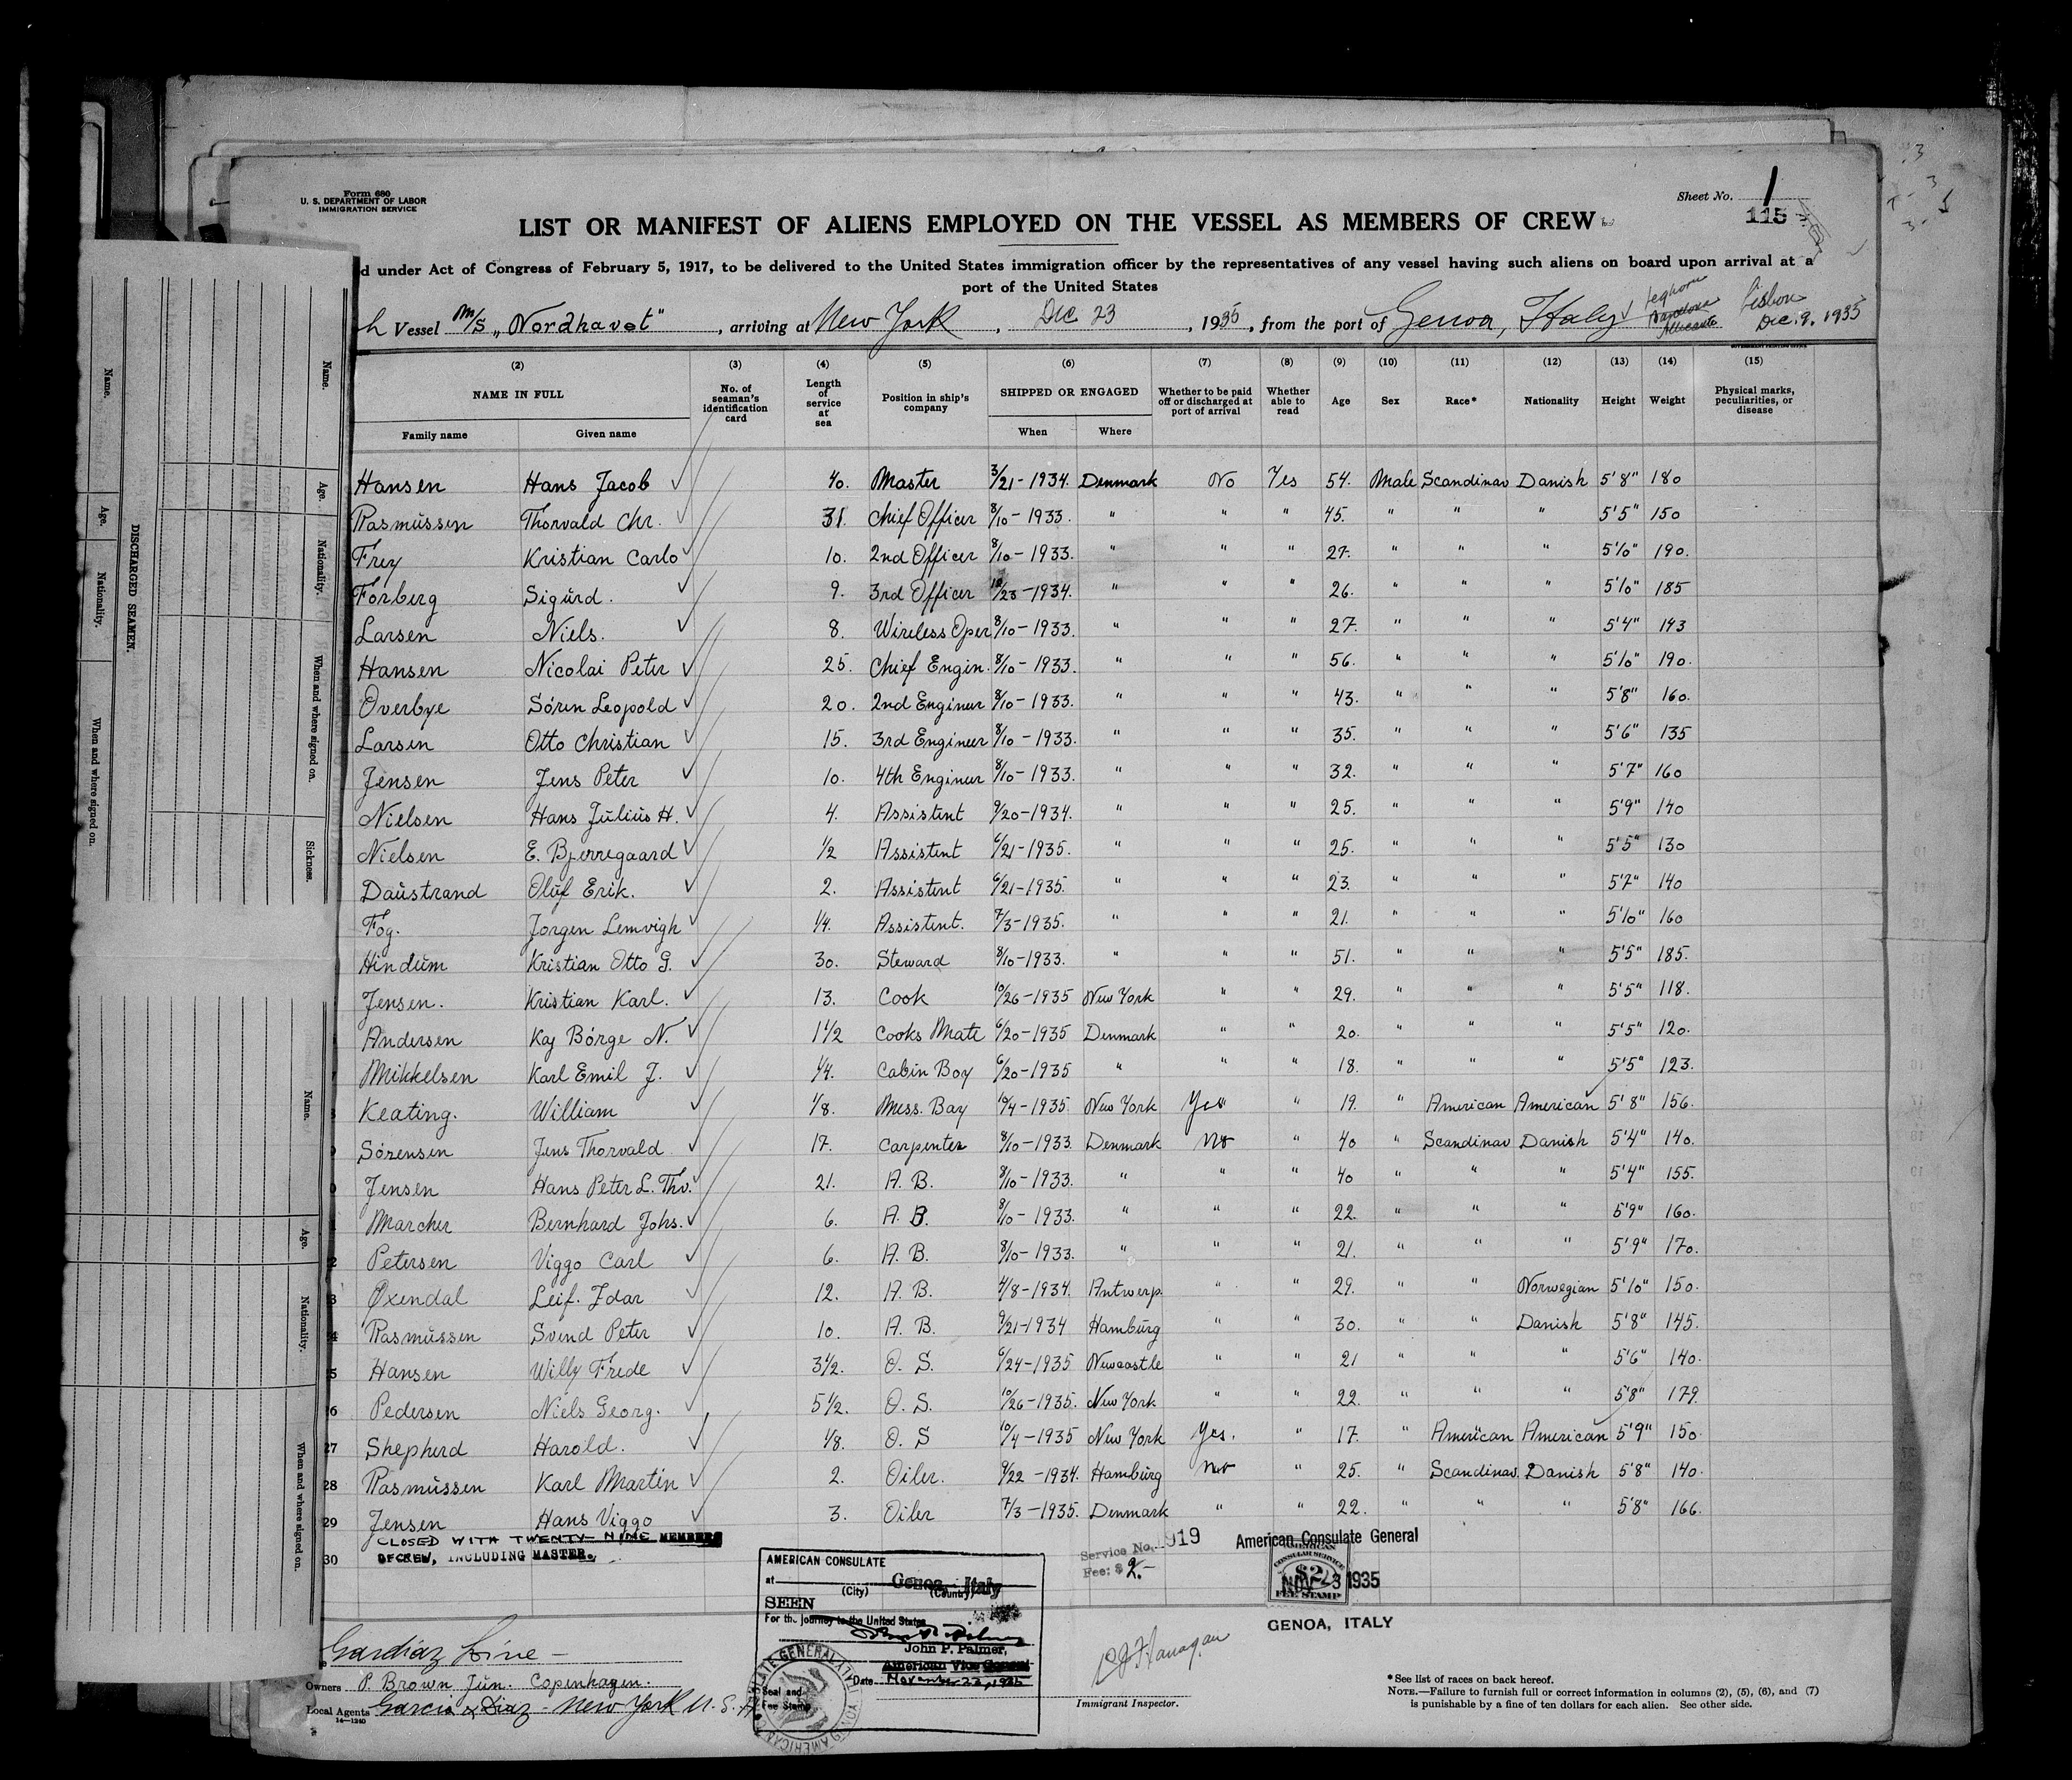 Form 680
U. S. DEPARTMENT OF LABOR
IMMIGRATION SERVICE
Sheet No. 1
115
LIST OR MANIFEST OF ALIENS EMPLOYED ON THE VESSEL AS MEMBERS OF CREW
d under Act of Congress of February 5, 1917, to be delivered to the United States immigration officer by the representatives of any vessel having such aliens on board upon arrival at a
port of the United States
Vessel M/S „Nordhavet", arriving at New York, Dec 23, 1935, from the port of Genoa, Italy Leghorn Lisbon Dec. 9. 1935
(2) (3) (4) (5) (6) (7) (8) (9) (10) (11) (12) (13) (14) (15)
NAME IN FULL No. of seaman's identification card Length of service at sea Position in ship's company SHIPPED OR ENGAGED Whether to be paid off or discharged at port of arrival Whether able to read Age Sex Race* Nationality Height Weight Physical marks, peculiarities, or disease
Family name Given name When Where
Hansen Hans Jacob ✓ 40. Master 3/21-1934. Denmark No Yes 54. Male Scandinav Danish 5'8" 180
Rasmussen Thorvald Chr. ✓ 31. Chief Officer 8/10-1933. " " " 45. " " " 5'5" 150
Frey Kristian Carlo ✓ 10. 2nd Officer 8/10-1933. " " " 27. " " " 5'10" 190.
Forberg Sigurd. ✓ 9. 3rd Officer 10/23-1934. " " " 26. " " " 5'10" 185
Larsen Niels. ✓ 8. Wireless Oper 8/10-1933. " " " 27. " " " 5'4" 143
Hansen Nicolai Peter ✓ 25. Chief Engin. 8/10-1933. " " " 56. " " " 5'10" 190.
Overbye Sören Leopold ✓ 20. 2nd Engineer 8/10-1933. " " " 43. " " " 5'8" 160.
Larsen Otto Christian ✓ 15. 3rd Engineer 8/10-1933. " " " 35. " " " 5'6" 135
Jensen Jens Peter ✓ 10. 4th Engineer 8/10-1933. " " " 32. " " " 5'7" 160
Nielsen Hans Julius H. ✓ 4. Assistent 9/20-1934. " " " 25. " " " 5'9" 140
Nielsen E. Bjerregaard ✓ 1/2 Assistent 6/21-1935. " " " 25. " " " 5'5" 130
Daustrand Oluf Erik. ✓ 2. Assistent 6/21-1935. " " " 23. " " " 5'7" 140
Fog. Jorgen Lemvigh ✓ 1/4. Assistent. 7/3-1935. " " " 21. " " " 5'10" 160
Hindum Kristian Otto G. ✓ 30. Steward 8/10-1933. " " " 51. " " " 5'5" 185.
Jensen. Kristian Karl. ✓ 13. Cook 10/26-1935 New York " " 29. " " " 5'5" 118.
Andersen Kaj Börge N. ✓ 1 1/2 Cooks Mate 6/20-1935 Denmark " " 20. " " " 5'5" 120.
Mikkelsen Karl Emil J. ✓ 1/4. Cabin Boy 6/20-1935 " " " 18. " " " 5'5" 123.
Keating. William ✓ 1/8. Mess. Bay 10/4-1935 New York Yes " 19. " American American 5'8" 156.
Sörensen Jens Thorvald ✓ 17. Carpenter 8/10-1933. Denmark No " 40 " Scandinav Danish 5'4" 140.
Jensen Hans Peter L. Thv. ✓ 21. A. B. 8/10-1933. " " " 40 " " " 5'4" 155.
Marcher Bernhard Johs. ✓ 6. A. B. 8/10-1933. " " " 22. " " " 5'9" 160.
Petersen Viggo Carl ✓ 6. A. B. 8/10-1933. " " " 21. " " " 5'9" 170.
Oxendal Leif. Idar ✓ 12. A. B. 4/8-1934. Antwerp. " " 29. " " Norwegian 5'10" 150.
Rasmussen Svend Peter ✓ 10. A. B. 9/21-1934 Hamburg " " 30. " " Danish 5'8" 145.
Hansen Willy Frede ✓ 3 1/2. O. S. 6/24-1935 Newcastle " " 21 " " " 5'6" 140.
Pedersen Niels Georg. ✓ 5 1/2. O. S. 10/26-1935. New York " " 22. " " " 5'8" 179.
27 Shepherd Harold. ✓ 1/8. O. S 10/4-1935 New York Yes. " 17. " American American 5'9" 150.
28 Rasmussen Karl Martin ✓ 2. Oiler. 9/22-1934. Hamburg No " 25. " Scandinav. Danish 5'8" 140.
29 Jensen Hans Viggo ✓ 3. Oiler 7/3-1935. Denmark " " 22. " " " 5'8" 166.
CLOSED WITH TWENTY-NINE MEMBERS
30 OF CREW, INCLUDING MASTER.
AMERICAN CONSULATE
at Genoa, Italy
(City) (Country)
SEEN
For the journey to the United States
John P. Palmer,
American Vice Consul
Date November 23, 1935
Seal and
Fee Stamp
Service No. 919
Fee: $ 2.-
American Consulate General
AMERICAN
CONSULAR SERVICE
$2
FEE STAMP
NOV 23 1935
GENOA, ITALY
Gardiaz Line
Owners P. Brown Jun. Copenhagen.
Local Agents Garcia & Diaz - New York U. S. A
14-1240
Immigrant Inspector.
*See list of races on back hereof.
NOTE.—Failure to furnish full or correct information in columns (2), (5), (6), and (7)
is punishable by a fine of ten dollars for each alien. See other side.
DISCHARGED SEAMEN.
Name. Age. Nationality. When and where signed on. Sickness.
Name. Age. Nationality. When and where signed on.
Name. Age. Nationality. When and where signed on.